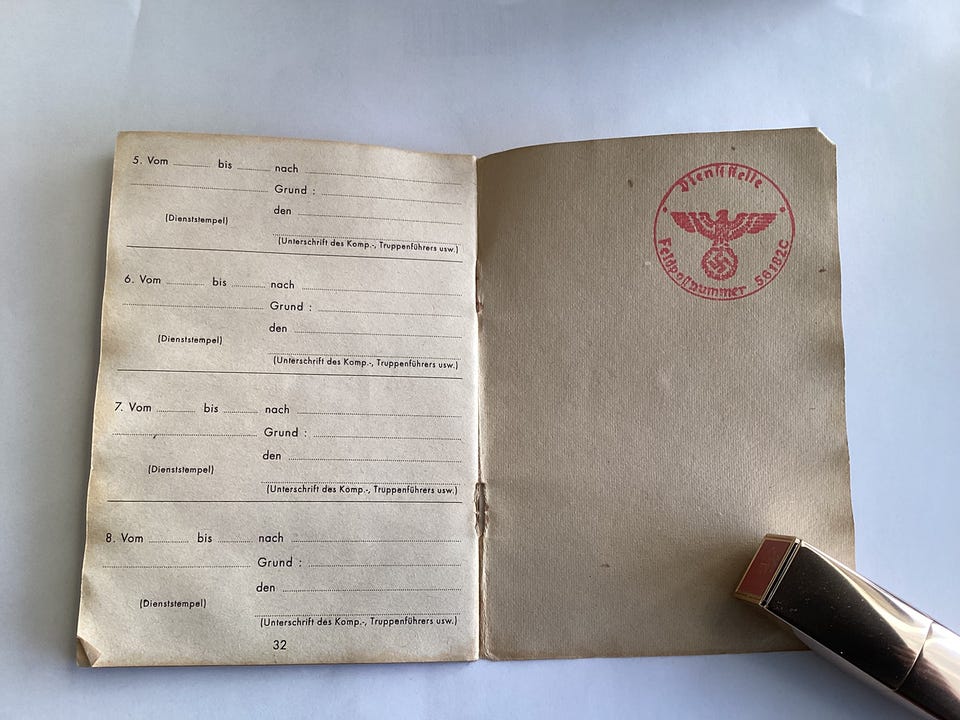 5. Vom ........ bis ........ nach
Grund :
(Dienststempel) den
(Unterschrift des Komp.-, Truppenführers usw.)
6. Vom ........ bis ........ nach
Grund :
den
(Dienststempel)
(Unterschrift des Komp.-, Truppenführers usw.)
7. Vom ........ bis ........ nach
Grund :
den
(Dienststempel)
(Unterschrift des Komp.-, Truppenführers usw.)
8. Vom ........ bis ........ nach
Grund :
den
(Dienststempel)
(Unterschrift des Komp.-, Truppenführers usw.)
32
Dienststelle
Feldpostnummer 56182C